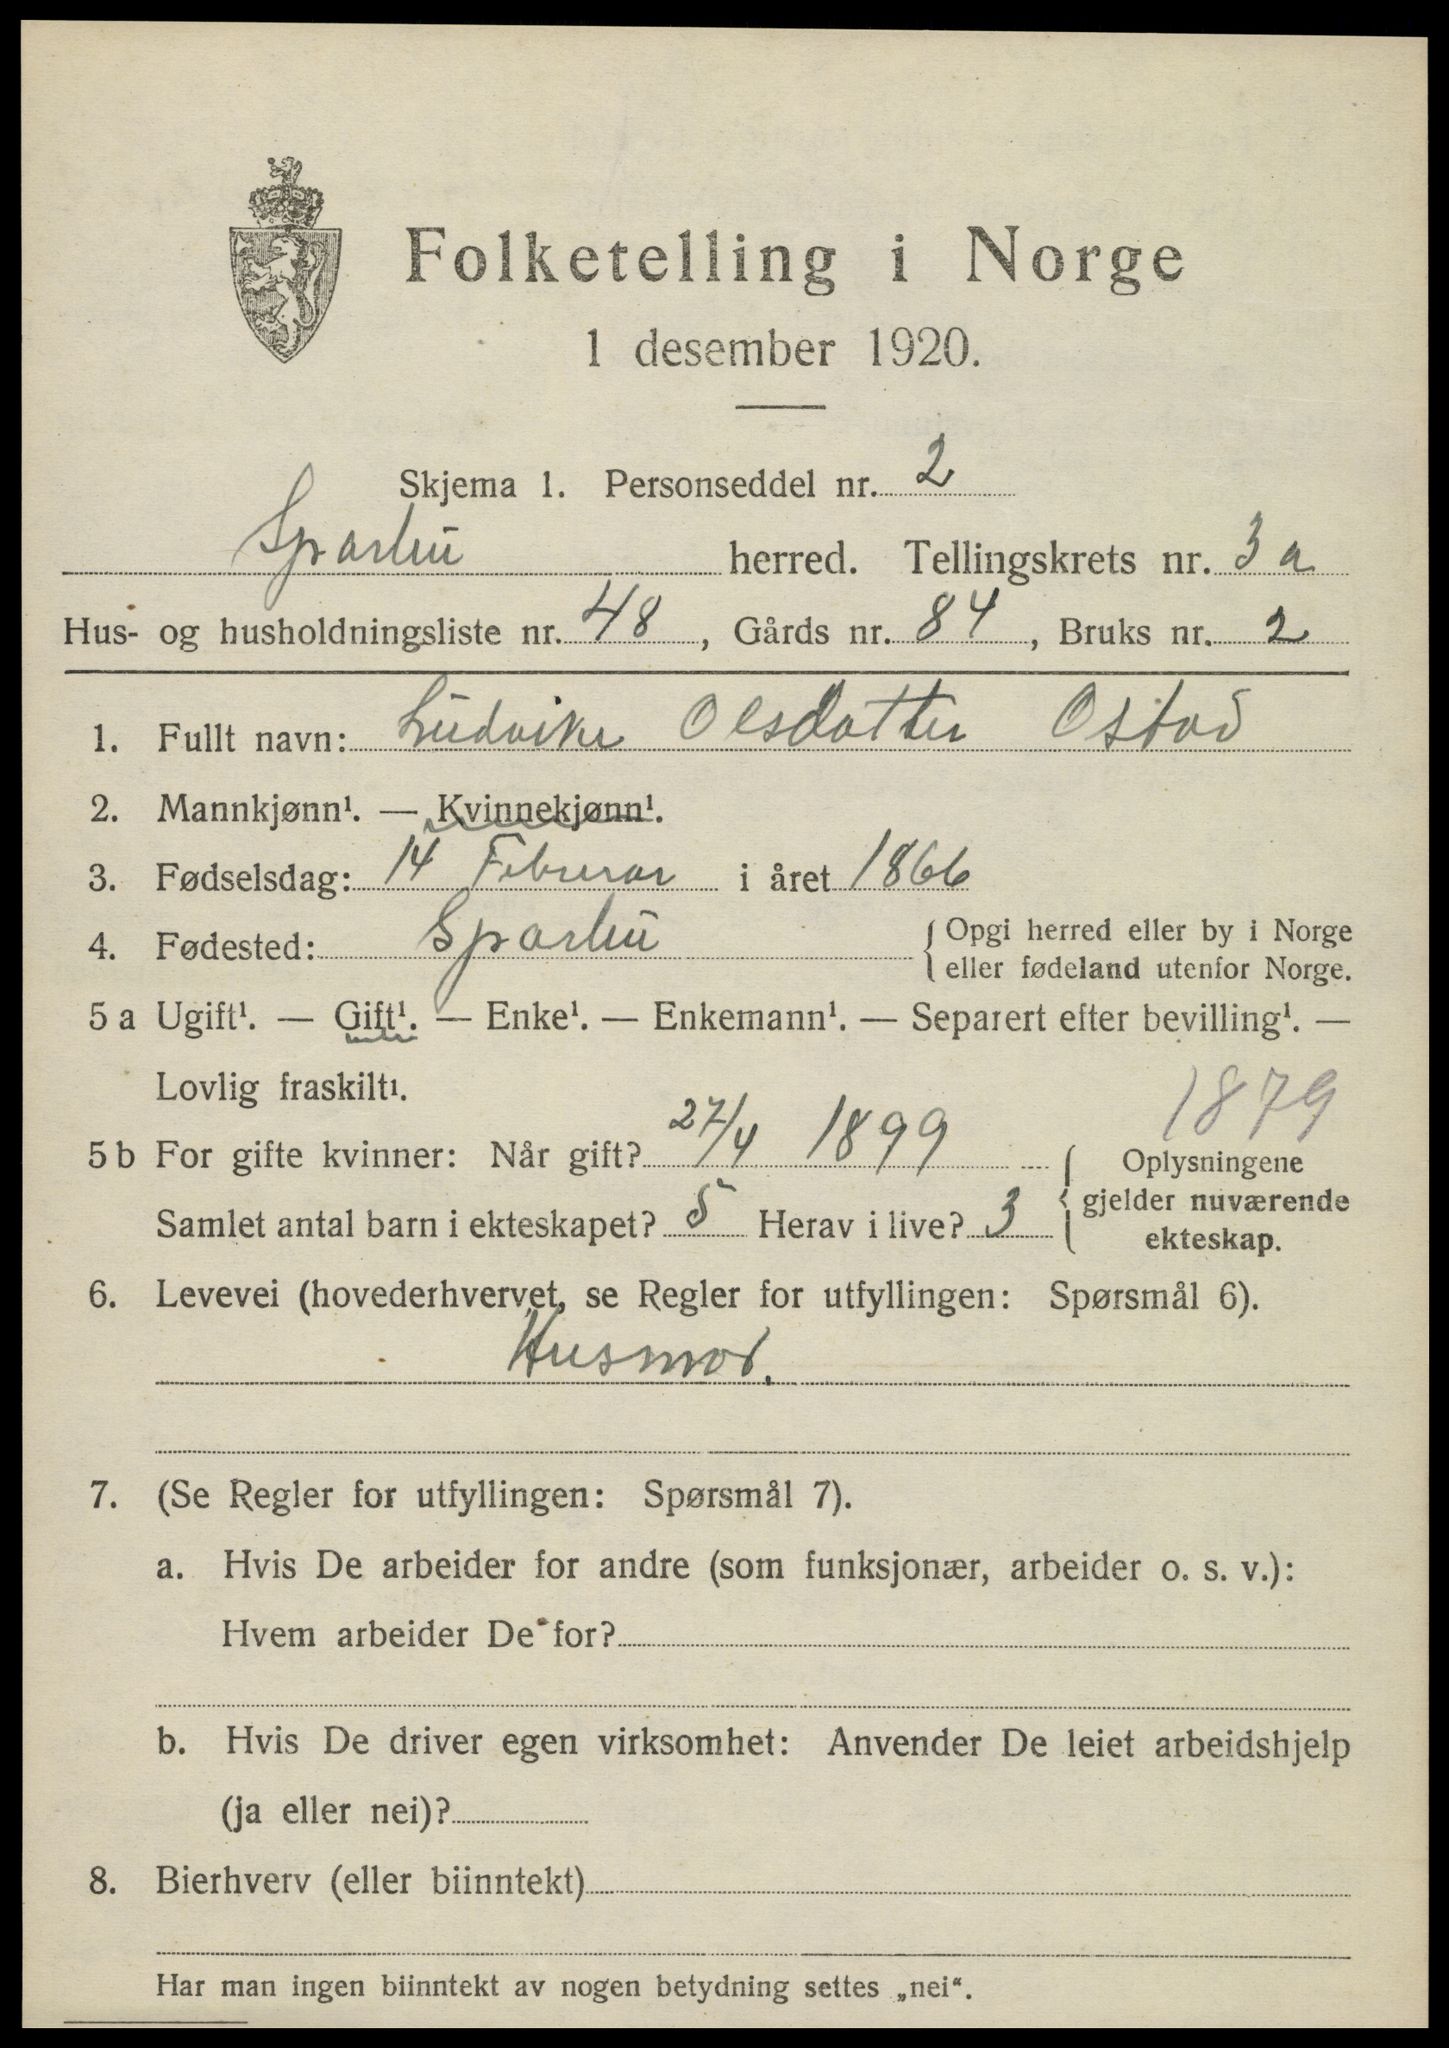 Folketelling i Norge
1 desember 1920.
Skjema 1. Personseddel nr. 2
Sparbu herred. Tellingskrets nr. 3 a
Hus- og husholdningsliste nr. 48, Gårds nr. 84, Bruks nr. 2
1. Fullt navn: Ludvike Olsdatter Østad
2. Mannkjønn¹. — Kvinnekjønn¹.
3. Fødselsdag: 14 Februar i året 1866
4. Fødested: Sparbu { Opgi herred eller by i Norge
eller fødeland utenfor Norge.
5 a Ugift¹. — Gift¹. — Enke¹. — Enkemann¹. — Separert efter bevilling¹. —
Lovlig fraskilt¹.
1879
5 b For gifte kvinner: Når gift? 27/4 1899
Samlet antal barn i ekteskapet? 5 Herav i live? 3
{ Oplysningene
gjelder nuværende
ekteskap.
6. Levevei (hovederhvervet, se Regler for utfyllingen: Spørsmål 6).
Husmor.
7. (Se Regler for utfyllingen: Spørsmål 7).
a. Hvis De arbeider for andre (som funksjonær, arbeider o. s. v.):
Hvem arbeider De for?
b. Hvis De driver egen virksomhet: Anvender De leiet arbeidshjelp
(ja eller nei)?
8. Bierhverv (eller biinntekt)
Har man ingen biinntekt av nogen betydning settes „nei“.